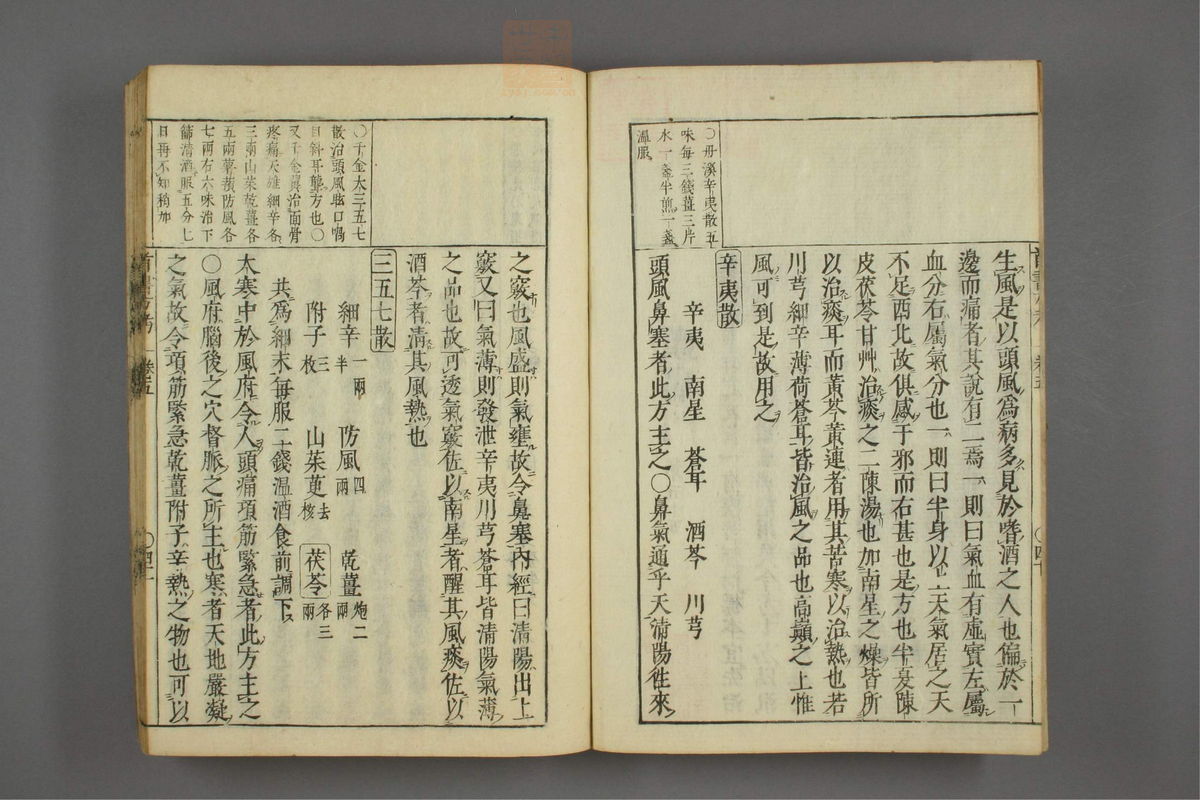 〇丹溪辛夷散五
味每三錢薑三片
水一盞半煎一盞
溫服
生風是以頭風爲病多見於嗜酒之人也偏於一
邊而痛者其說有二焉一則曰氣血有虛實左屬
血分右屬氣分也一則曰半身以上天氣居之天
不足西北故俱感于邪而右甚也是方也半夏陳
皮茯苓甘艸治痰之二陳湯也加南星之燥皆所
以治痰耳而黃芩黃連者用其苦寒以治熱也若
川芎細辛薄荷蒼耳皆治風之品也高巔之上惟
風可到是故用之
辛夷散
辛夷 南星 蒼耳 酒芩 川芎
頭風鼻塞者此方主之〇鼻氣通乎天清陽徃來
卷五
〇四十
〇千金大三五七
散治頭風眩口喎
目斜耳聾方也〇
又千金翼治面骨
疼痛天雄細辛各
三兩山茱乾薑各
五兩薯蕷防風各
七兩右六味治下
篩清酒服五分匕
日再不知稍加
之竅也風盛則氣壅故令鼻塞內經曰清陽出上
竅又曰氣薄則發泄辛夷川芎蒼耳皆清陽氣薄
之品也故可透氣竅佐以南星者醒其風痰佐以
酒芩者清其風熱也
三五七散
細辛一兩半 防風四兩 乾薑炮二兩
附子三枚 山茱萸去核 茯苓各三兩
共爲細末每服二錢温酒食前調下
大寒中於風府令人頭痛項筋緊急者此方主之
〇風府腦後之穴督脈之所主也寒者天地嚴凝
之氣故令項筋緊急乾薑附子辛熱之物也可以
卷五
〇四十一